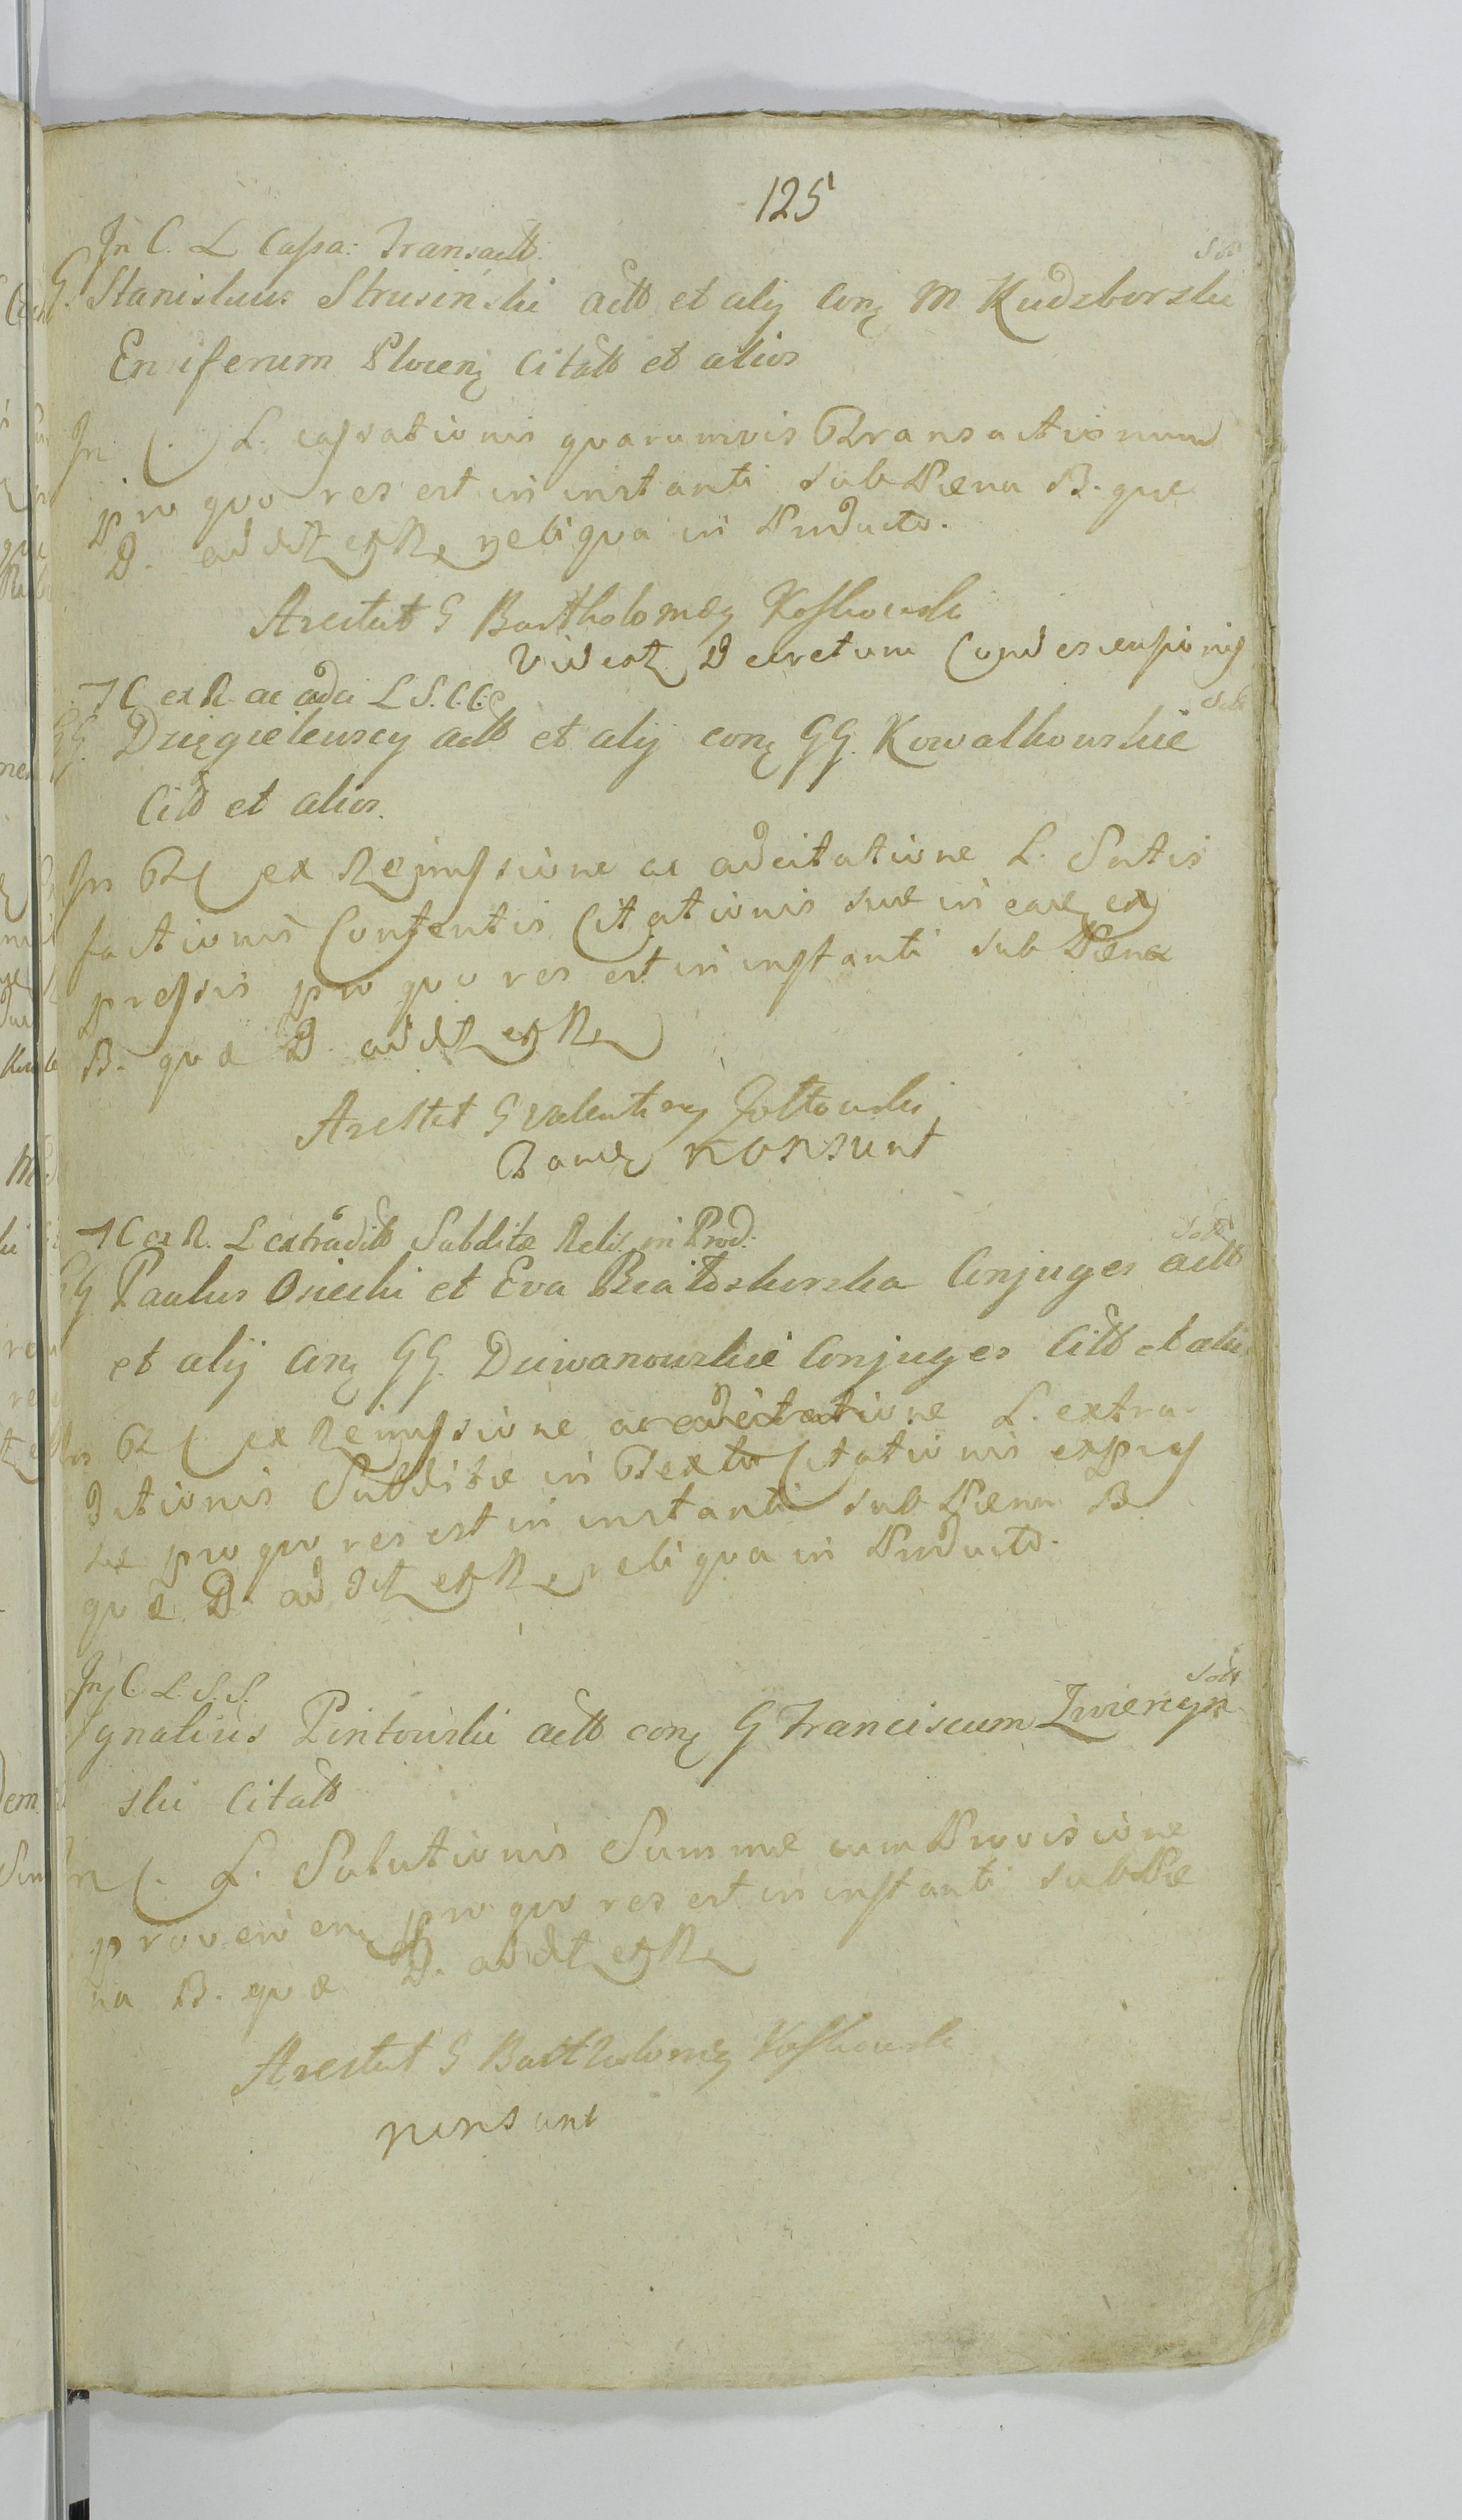 125
In C. L Cassa: Transactt
solt
G. Stanislaus Strusinski actt et alij con M Kudzborski
Ensiferum Plocen Citatt et alios
In C. L. cassationis quarumvis Transactionum
pro quo res est in instanti sub Pœna B. quæ
D. ad dct et R reliqua in Producto.
Arestat G Bartholomæg Koskowski
Videat Decretum Condescensionis
TC ex R ac adci L S. C. C.
solt
GG. Dzięgielewscy actt et alij con GG. Kowalkowskie
Citt et alios.
In TC ex Remissione ac adcitatione L. Satis
factionis Contentis Citationis suæ in eade ex
pressis pro quo res est in instanti sub Pœna
B. quæ D. ad dct et R
Arestat G Valentineg Zołtowski
Partes non sunt
TC ex R. L extradit Subditæ Reli. in Prod:
solt
GG Paulus Osiecki et Eva Białoskurska Conjuges actt
et alij con GG. Duwanowskie Conjuges Citt et alios
In TC ex Remissione ac adcitatione L. extra-
ditionis Subditæ in Textu Citationis expres
sæ pro quo res est in instanti sub Pœna B
quæ D. ad dct et R reliqua in Producto.
In C. L. S. S.
solt
Ignatius Pintowski actt con G Franciscum Zwierzyn
ski Citatt
In C. L. Solutionis Summæ cum Provisione
provenien pro quo res est in instanti sub Pœ
na B. quæ D. ad dct et R
Arestat G Bartholomeg Koskowski
non sunt